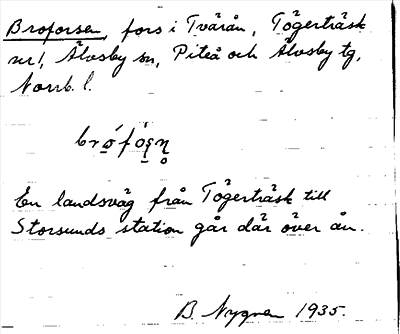 Broforsen, fors i Tvärån, Tögerträsk
nr 1, Älvsby sn, Piteå och Älvsby tg,
Norrb. l.
bro̲´fó̲ṣn̥
En landsväg från Tögerträsk till
Storsunds station går där över ån.
B. Nygren 1935.